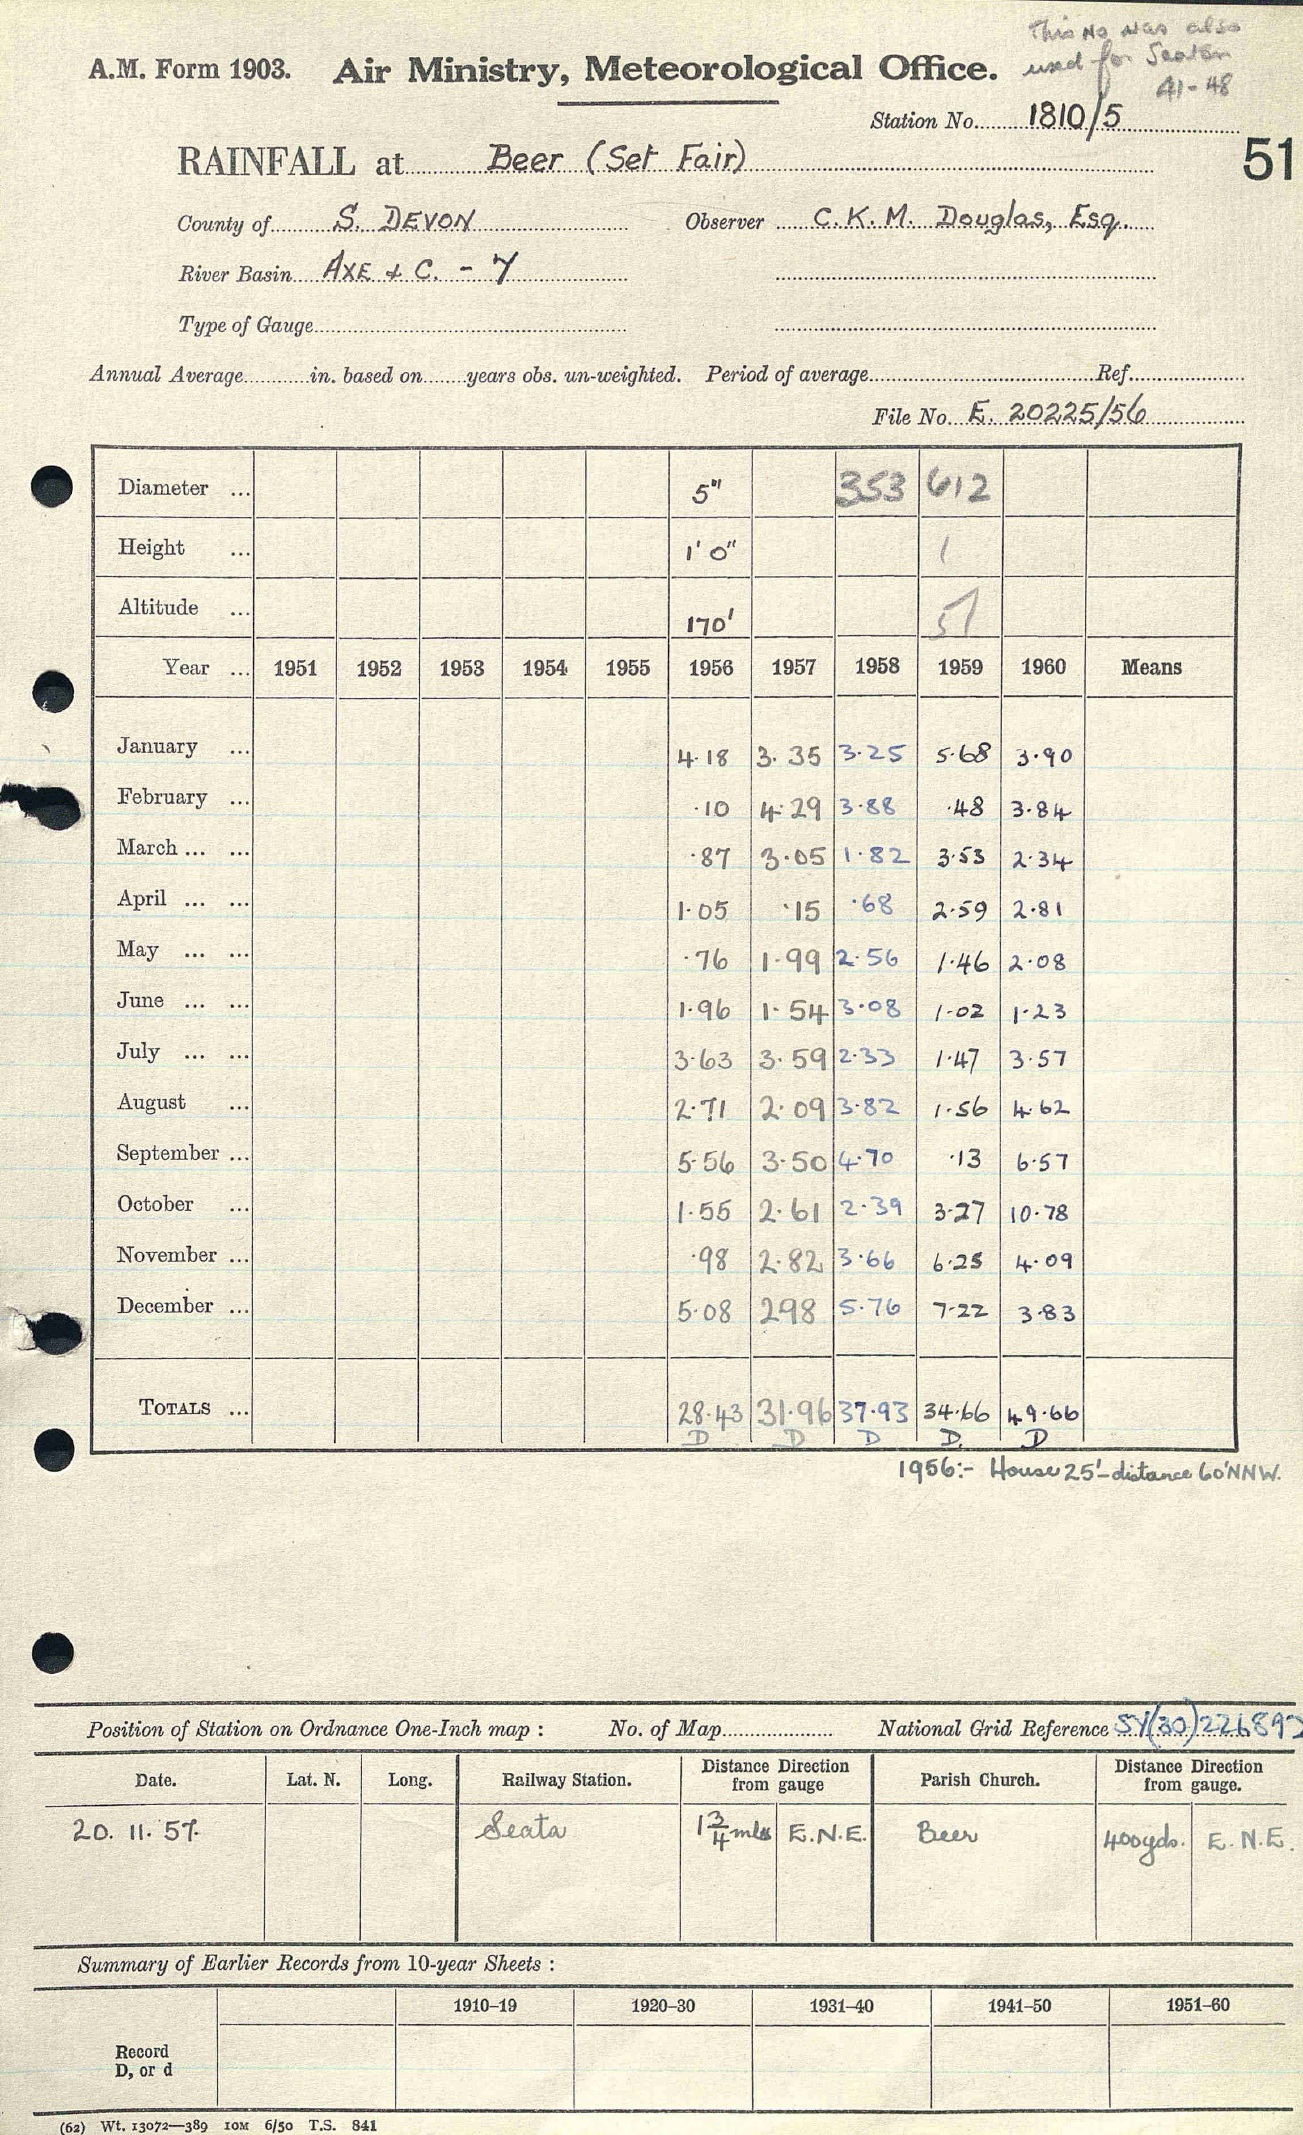 This No was also
used for Seaton
41-48
A.M. Form 1903. Air Ministry, Meteorological Office.
Station No. 1810/5
51
RAINFALL at Beer (Set Fair)
County of S. DEVON Observer C.K.M. Douglas, Esq.
River Basin AXE & C. - 7
Type of Gauge
Annual Average in. based on years obs. un-weighted. Period of average Ref.
File No. E. 20225/56
Diameter ... 5" 353 612
Height ... 1' 0" 1
Altitude ... 170' 51
Year ... 1951 1952 1953 1954 1955 1956 1957 1958 1959 1960 Means
January ... 4.18 3.35 3.25 5.68 3.90
February ... .10 4.29 3.88 .48 3.84
March ... ... .87 3.05 1.82 3.53 2.34
April ... ... 1.05 .15 .68 2.59 2.81
May ... ... .76 1.99 2.56 1.46 2.08
June ... ... 1.96 1.54 3.08 1.02 1.23
July ... ... 3.63 3.59 2.33 1.47 3.57
August ... 2.71 2.09 3.82 1.56 4.62
September ... 5.56 3.50 4.70 .13 6.57
October ... 1.55 2.61 2.39 3.27 10.78
November ... .98 2.82 3.66 6.25 4.09
December ... 5.08 298 5.76 7.22 3.83
TOTALS ... 28.43 31.96 37.93 34.66 49.66
D D D D. D
1956:- House 25'-distance 60'NNW.
Position of Station on Ordnance One-Inch map : No. of Map National Grid Reference SY(30)226892
Date. Lat. N. Long. Railway Station. Distance Direction from gauge Parish Church. Distance Direction from gauge.
20. 11. 57. Seata 1 3/4 mls E.N.E. Beer 400yds. E.N.E.
Summary of Earlier Records from 10-year Sheets :
1910-19 1920-30 1931-40 1941-50 1951-60
Record
D, or d
(62) Wt. 13072—389 10M 6/50 T.S. 841